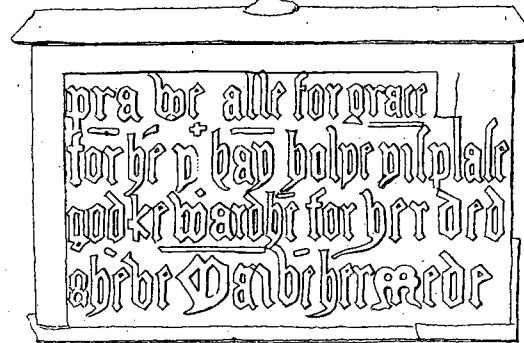 pra we alle for grace
for hē y hay holpe yis plase
god Rewardhē for her ded
& hēve Mai be her Mede